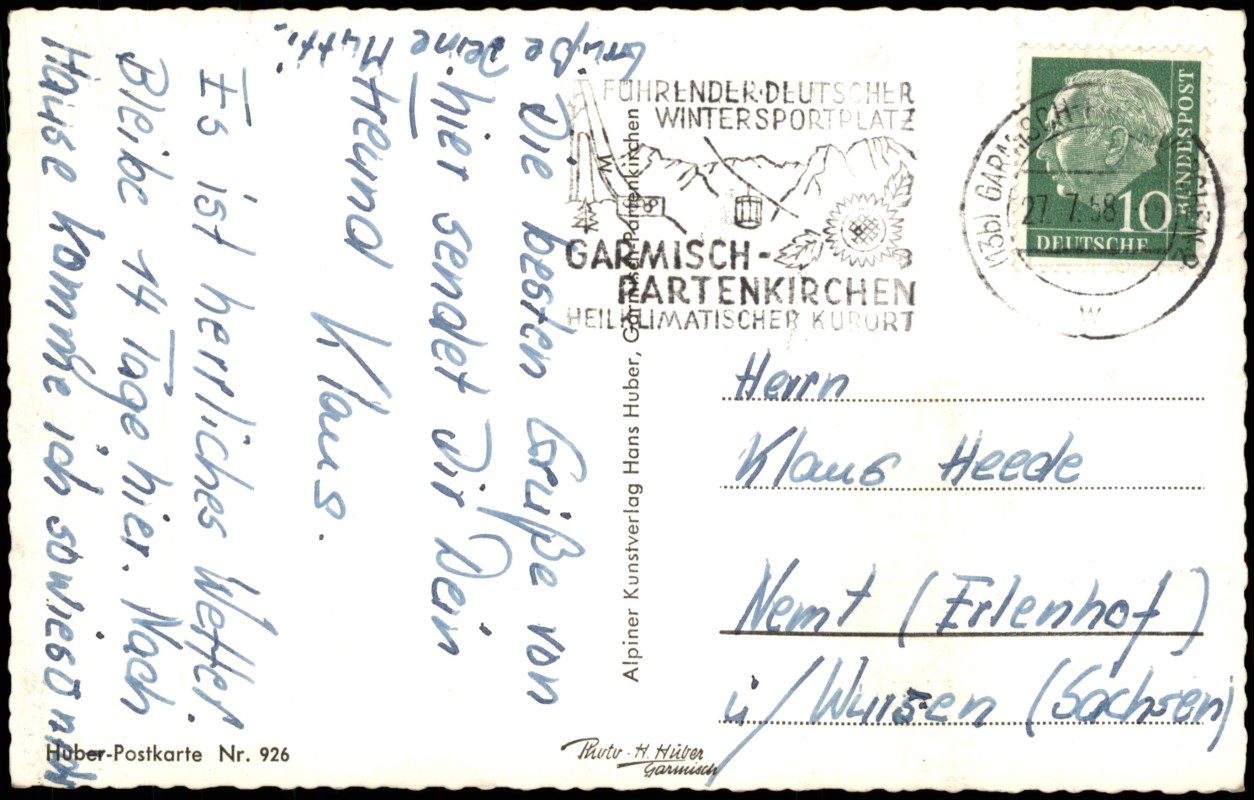 Die besten Grüße von
hier sendet Dir Dein
Freund
Klaus.
Es ist herrliches Wetter.
Bleibe 14 Tage hier. Nach
Hause komme ich sowieso nich
Grüße Deine
Mutti.
FÜHRENDER·DEUTSCHER
WINTERSPORTPLATZ
GARMISCH-
PARTENKIRCHEN
HEILKLIMATISCHER KURORT
(13b) GARMISCH-
27.7.58
W
10
DEUTSCHE
BUNDESPOST
Herrn
Klaus Heede
Nemt (Erlenhof)
ü/Wurzen (Sachsen)
Alpiner Kunstverlag Hans Huber, Garmisch-Partenkirchen
Huber-Postkarte Nr. 926
Photo-H. Huber
Garmisch